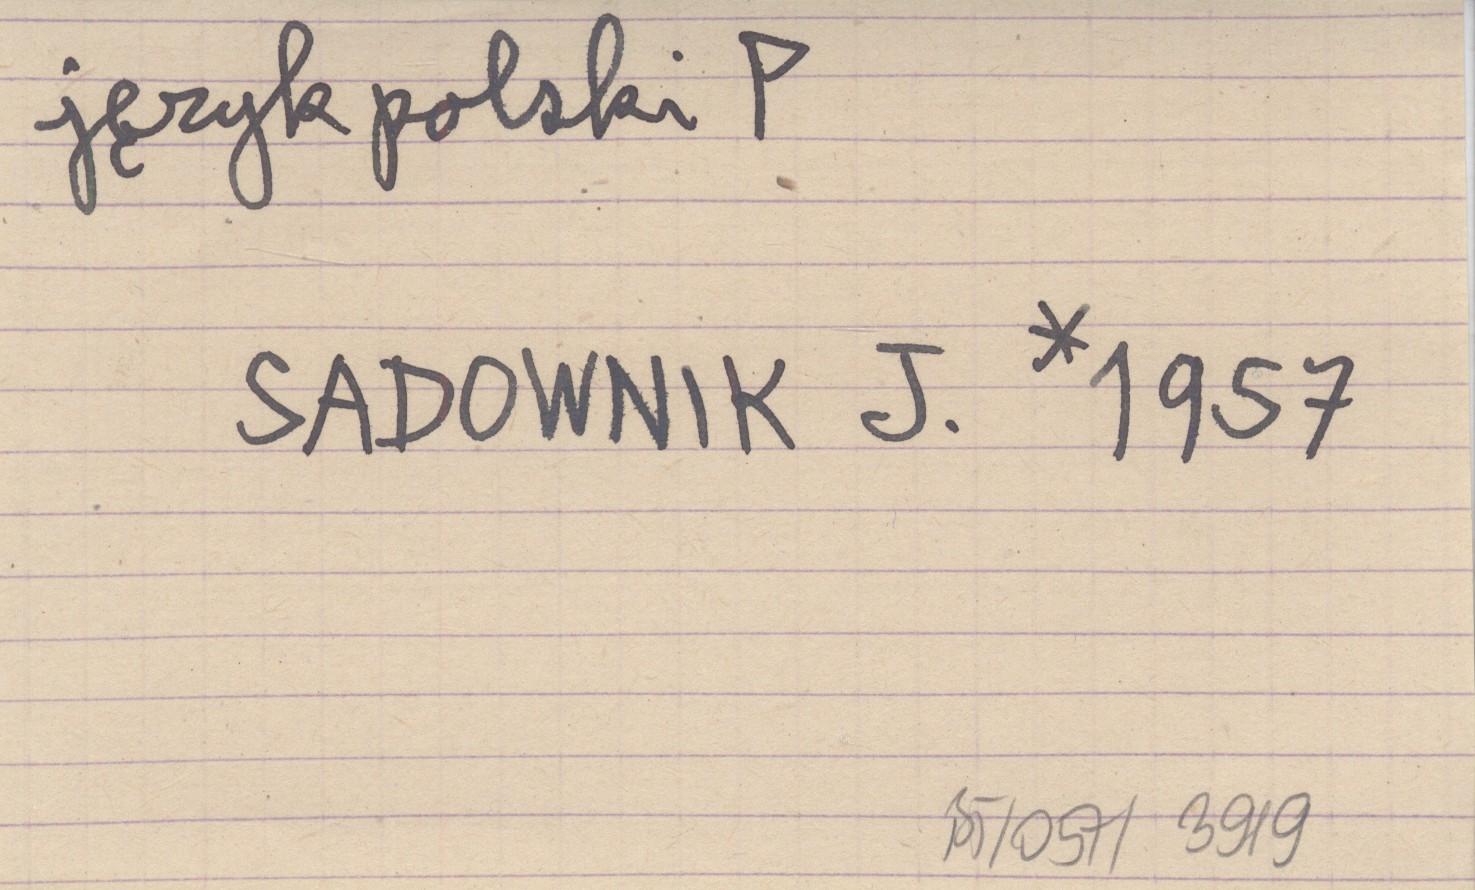 język polski P
SADOWNIK J. *1957
/057/ 3919